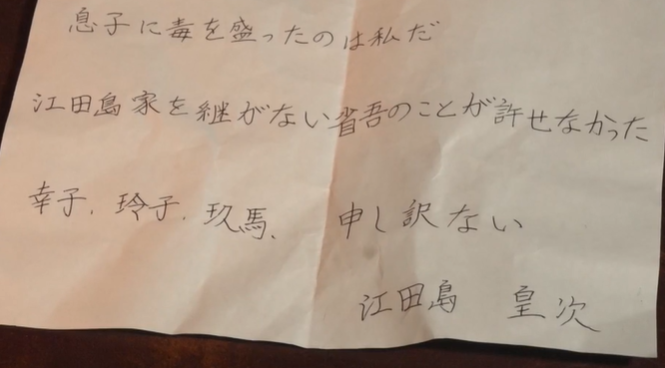 息子に毒を盛ったのは私だ
江田島家を継がない省吾のことが許せなかった
幸子、玲子、玖馬、 申し訳ない
江田島 皇次